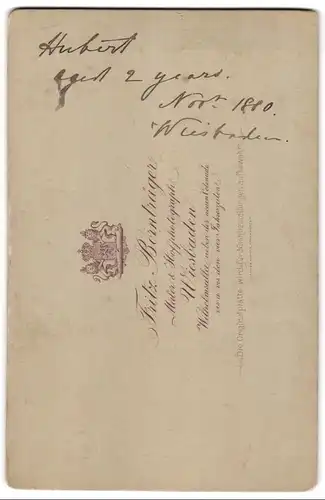 Hubert
aged 2 years.
Novr. 1880.
Wiesbaden.
Fritz Bornträger
Maler & Hofphotograph
Wiesbaden
Wilhelmsallee neben der neuen Colonade
vis a vis den vier Jahreszeiten
Die Originalplatte wird für Nachbestellungen aufbewahrt